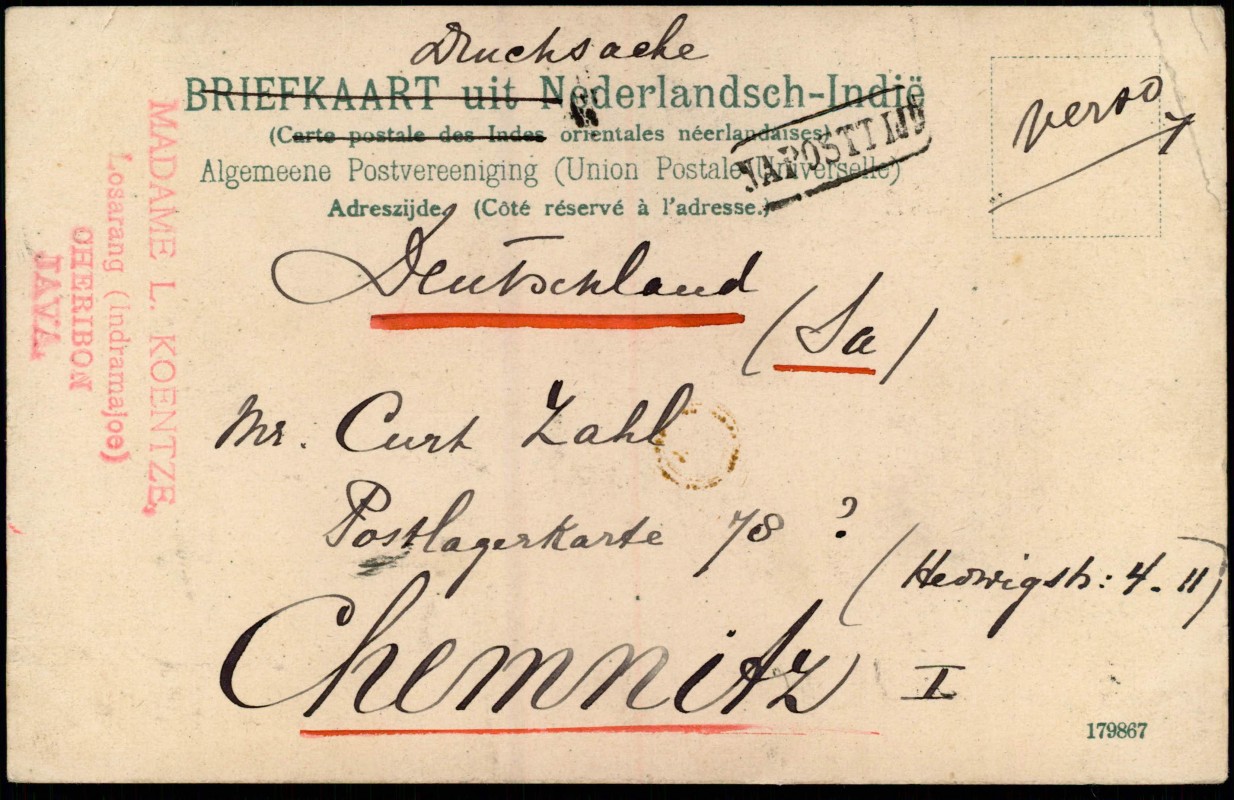 Drucksache
BRIEFKAART uit Nederlandsch-Indië
(Carte postale des Indes orientales néerlandaises)
Algemeene Postvereeniging (Union Postale Universelle)
Adreszijde. (Côté réservé à l'adresse.)
NAPOSTTIJD
verso
MADAME L. KOENTZE,
Losarang (Indramajoe)
CHERIBON
JAVA.
Deutschland
(Sa)
Mr. Curt Zahl
Postlagerkarte 78 ?
(Hedwigstr: 4. II)
Chemnitz I
179867